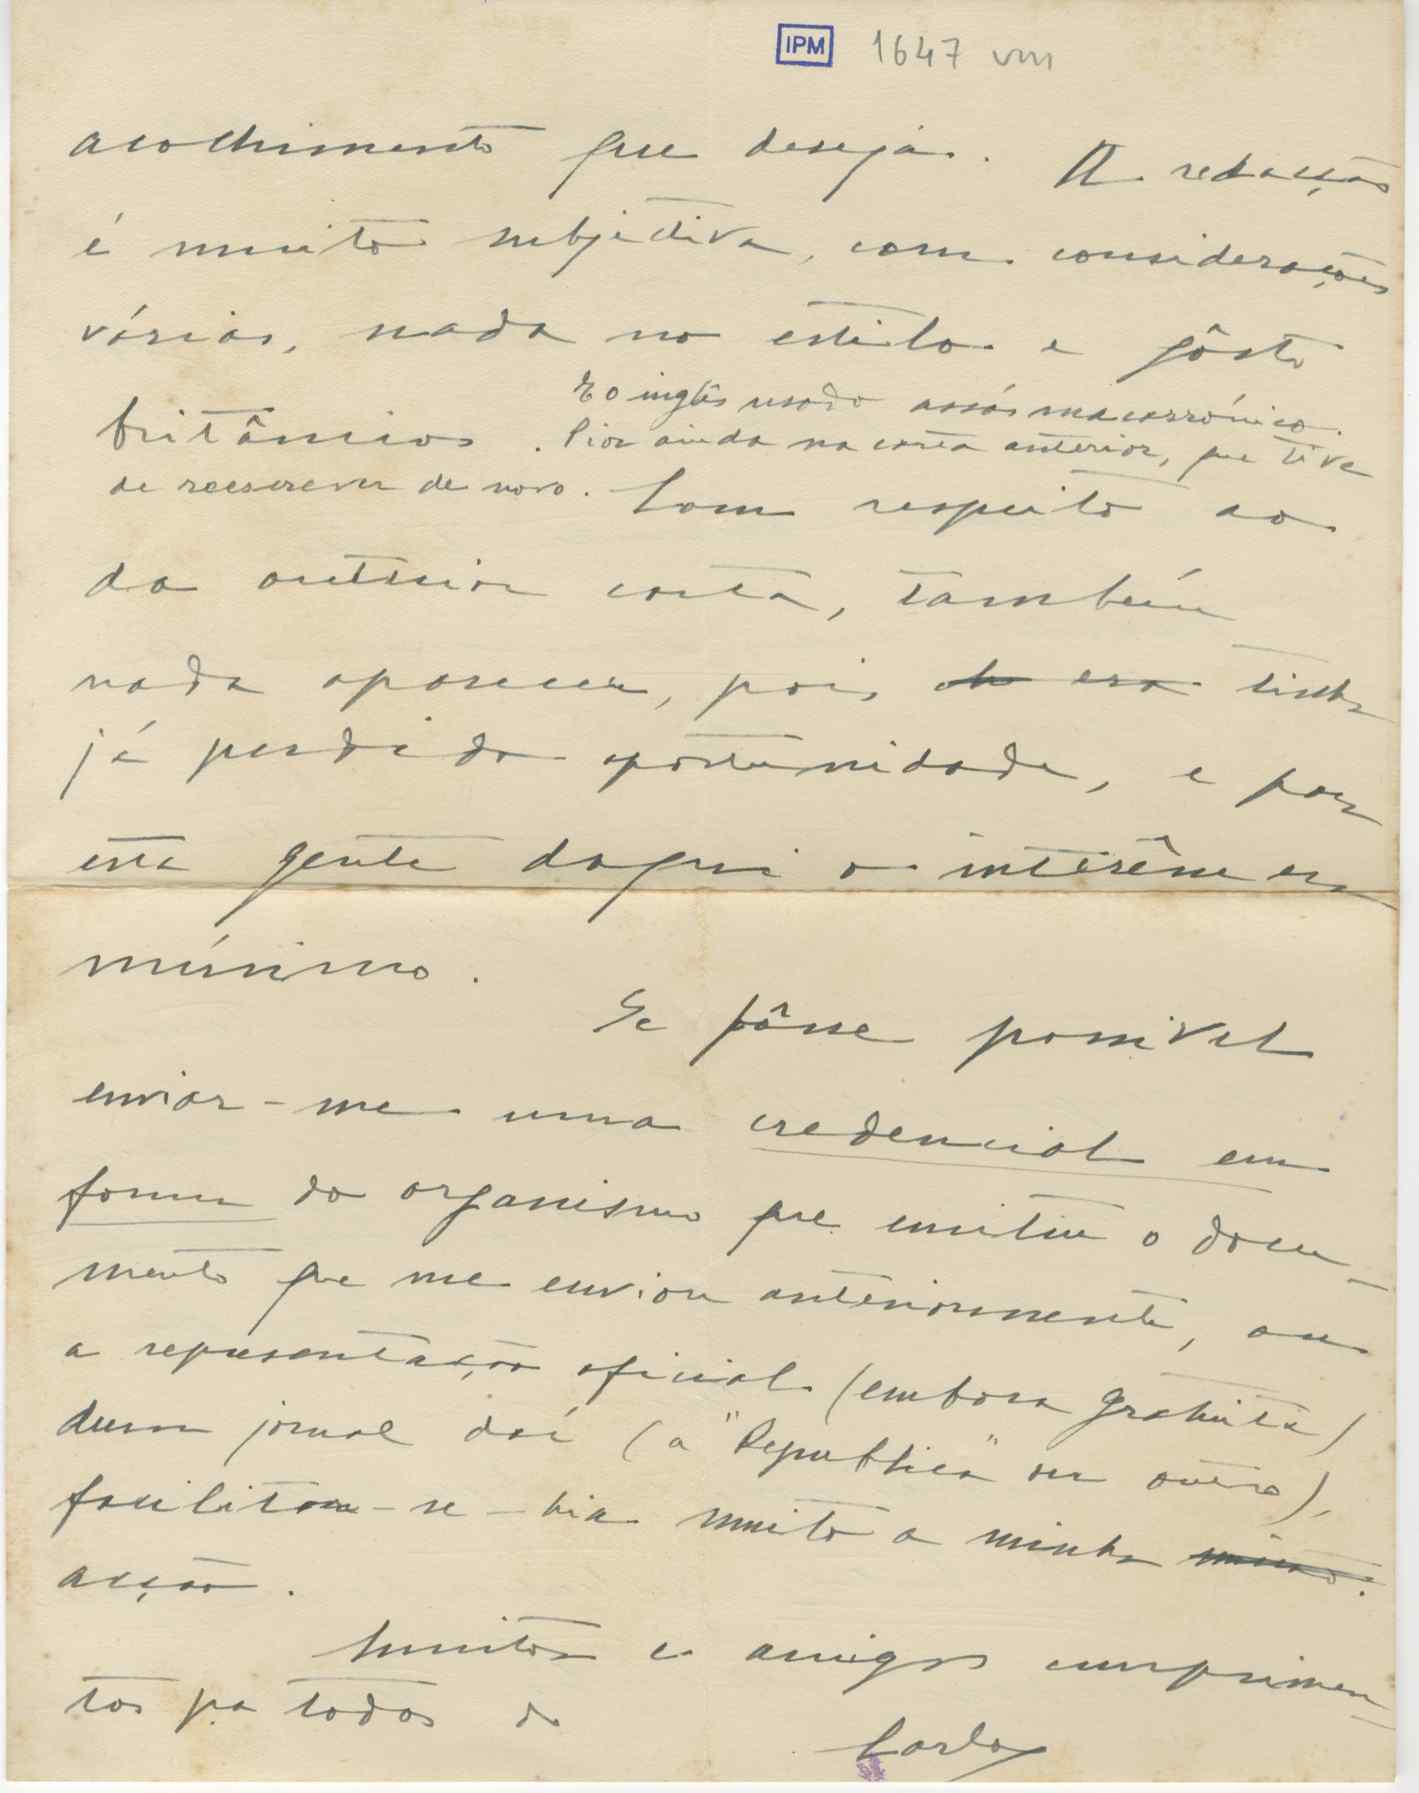 IPM 1647 VIII
acolhimento que deseja. A redacção
é muito subjectiva, com considerações
várias, nada no estilo e gôsto
britânicos. E o inglês usado assás macarrónico.
Pior ainda na carta anterior, que tive
de reescrever de novo. Com respeito ao
da anterior carta, também
nada apareceu, pois era tinha
já perdido oportunidade, e para
esta gente daqui o interêsse era
mínimo.
Se fôsse possivel
enviar-me uma credencial em
forma do organismo que emitiu o docu-
mento que me enviou anteriormente, ou
a representação oficial (embora gratuita)
dum jornal daí (a "Republica" ou outro),
facilitar-se-hia muito a minha
acção.
Muitos e amigos cumprimen-
tos pa todos do
Carlos